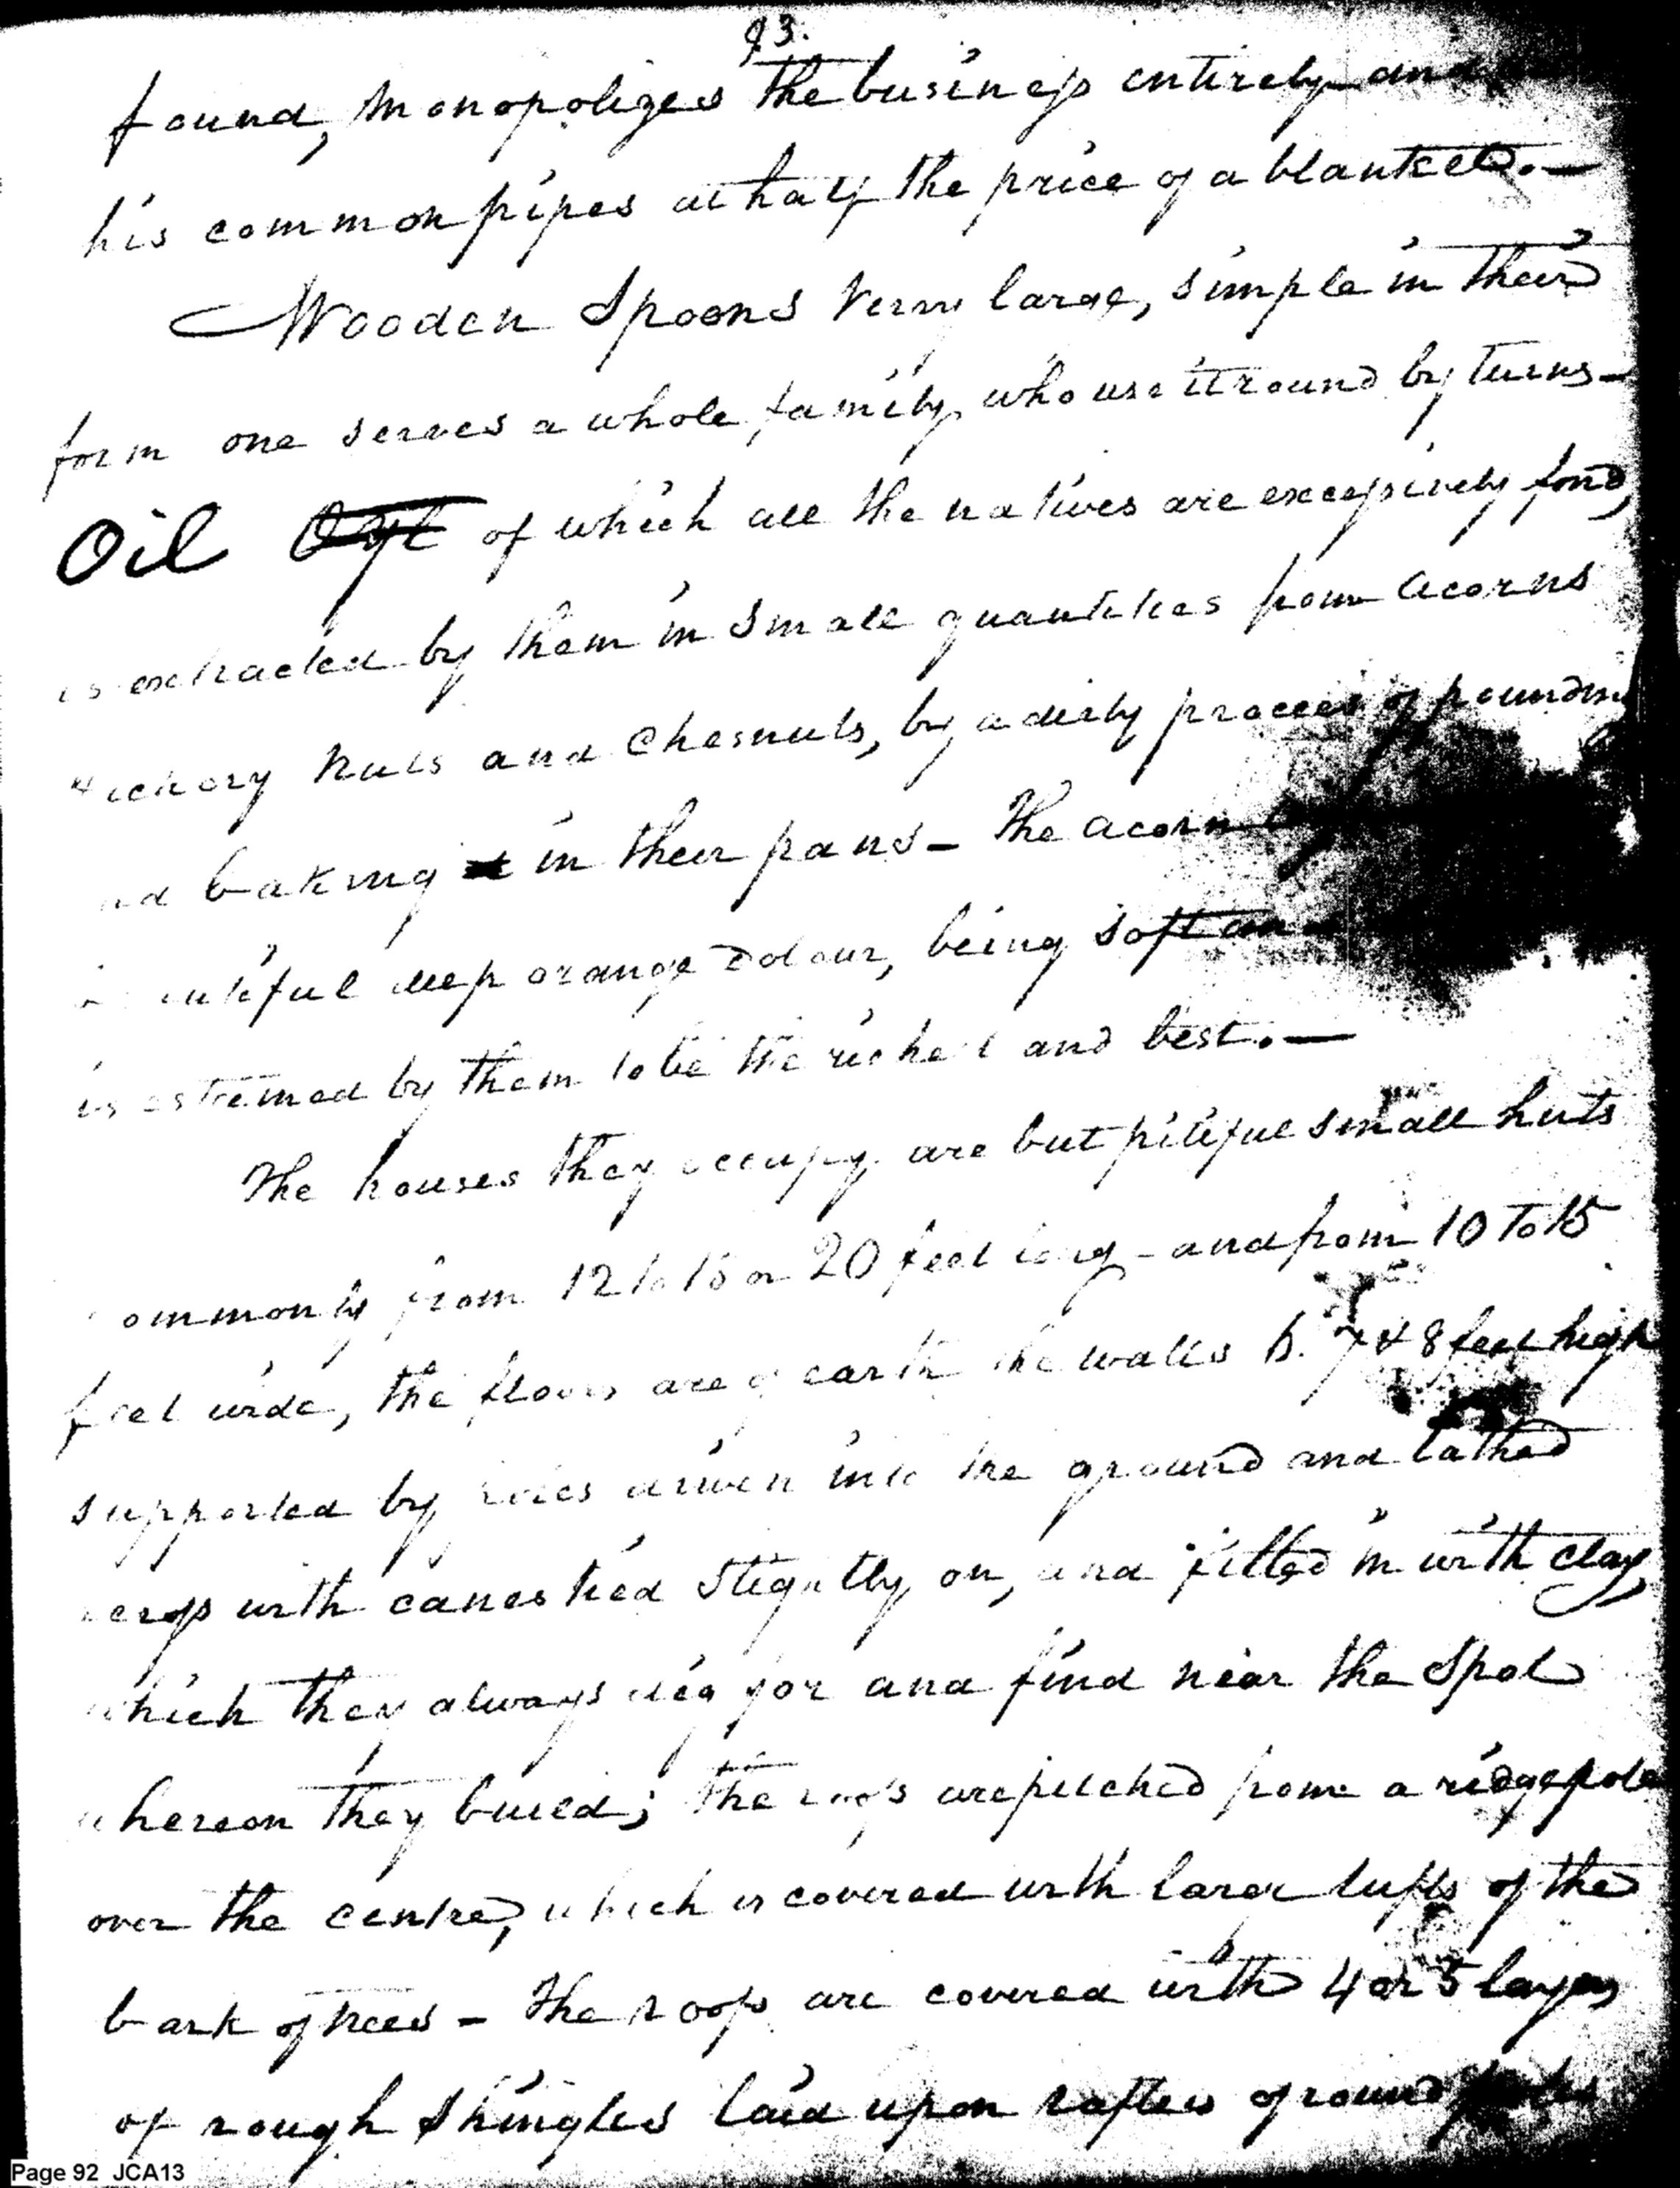 93.
found, monopolizes the business entirely and
his common pipes at half the price of a blanket.—
Wooden Spoons Very large, simple in their
form one serves a whole family, who use it round by turns—
Oil Oyl of which all the natives are excessively fond,
is extracted by them in small quantities from acorns
Hickory nuts and Chesnuts, by a dirty process of pounding
and baking in their pans – The acorn
deep orange colour, being soft and
is esteemed by them to be the richest and best.—
The houses they occupy are but pitiful small huts
commonly from 12 to 15 or 20 feet long – and from 10 to 15
feet wide, the floors are of earth the walls 6. 7 & 8 feet high
supported by poles driven into the ground and lathed
across with canes tied slightly on, and filled in with clay,
which they always dig for and find near the Spot
whereon they build; the roofs are pitched from a ridge pole
over the centre, which is covered with larer tufts of the
bark of trees – The roofs are covered with 4 or 5 layers
of rough shingles laid upon rafters of round poles
Page 92 JCA13